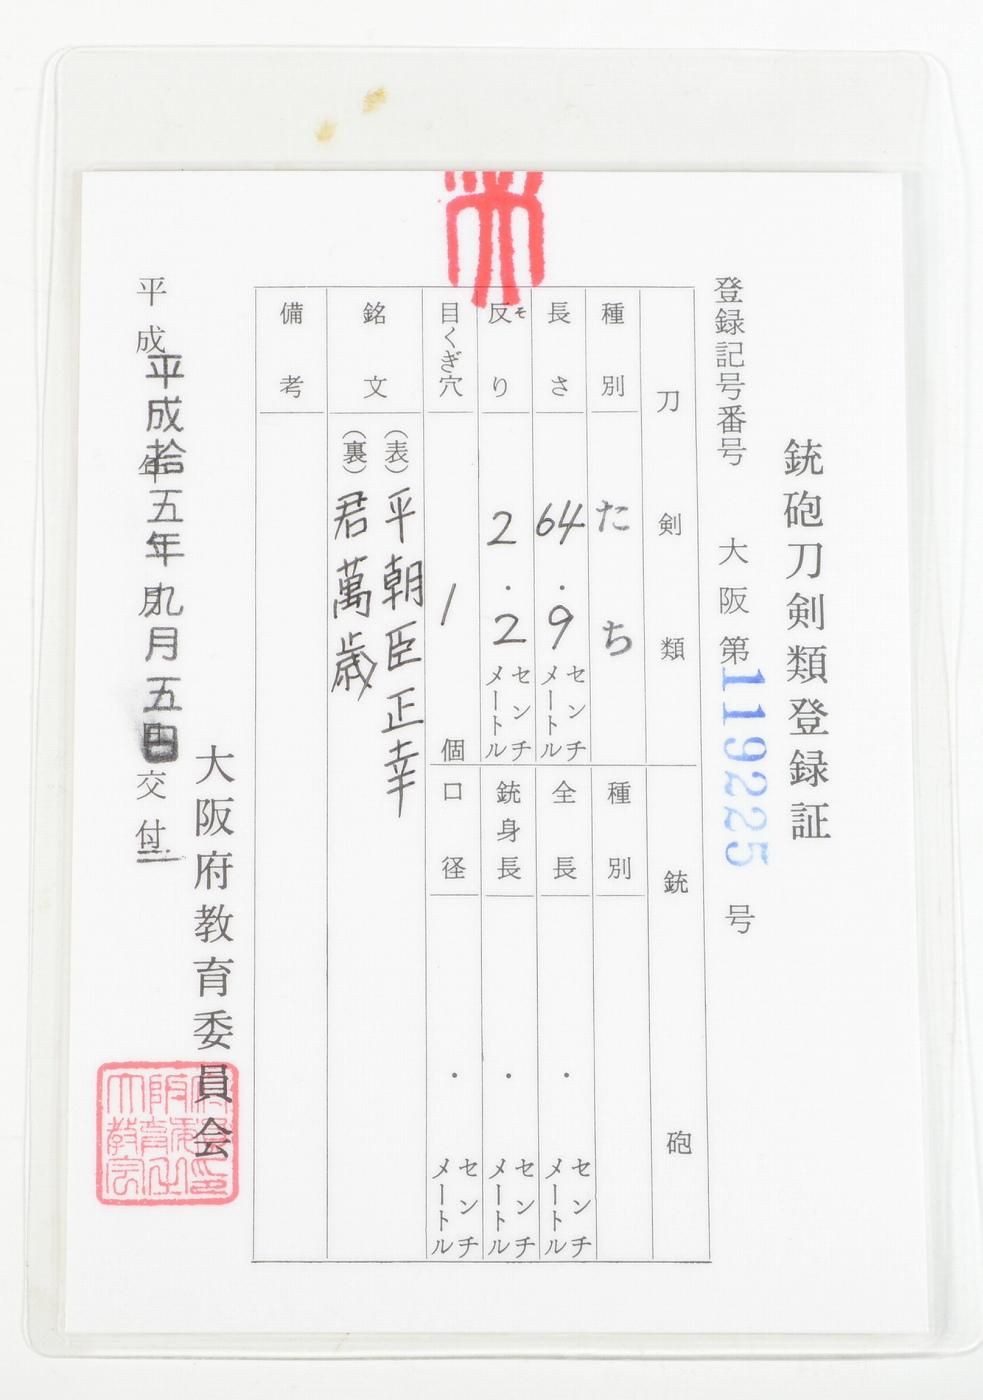 銃砲刀剣類登録証
登録記号番号 大阪 第119225号
刀剣類
種別 たち
長さ 64.9 センチメートル
反り そ 2.2 センチメートル
目くぎ穴 1 個
銘文
(表)平朝臣正幸
(裏)君萬歳
備考
銃砲
種別
全長 . センチメートル
銃身長 . センチメートル
口径 . センチメートル
平成 年 月 日 交付
平成拾五年九月五日
大阪府教育委員会